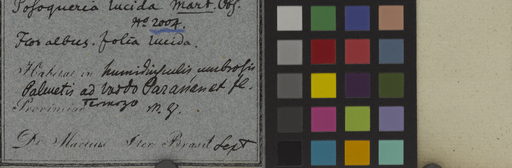 Posoqueria lucida Mart. Obs.
No 2004.
Flos albus. folia lucida.
Habitat in humidiusculis umbrosis
Palmetis ad Vado Paranan et fl.
Provinciae M. Gy.
Dr. Martius Iter Brasil Sept